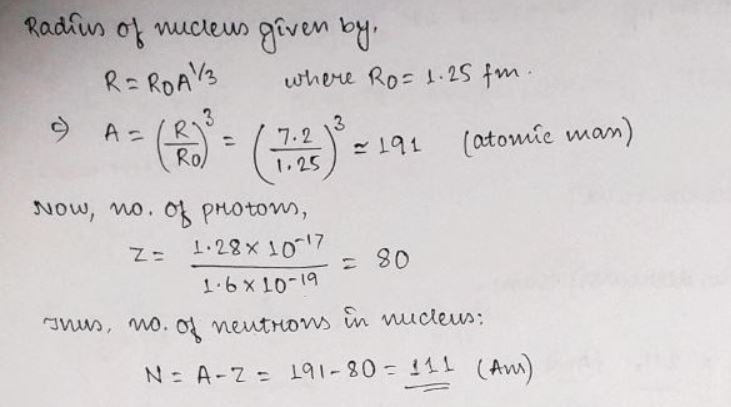 Radius of nucleus given by,
R = R₀A^1/3 where R₀ = 1.25 fm.
⇒ A = (R/R₀)³ = (7.2/1.25)³ ≃ 191 (atomic mass)
Now, no. of protons,
Z = 1.28 × 10⁻¹⁷ / 1.6 × 10⁻¹⁹ = 80
Thus, no. of neutrons in nucleus:
N = A - Z = 191 - 80 = 111 (Ans)